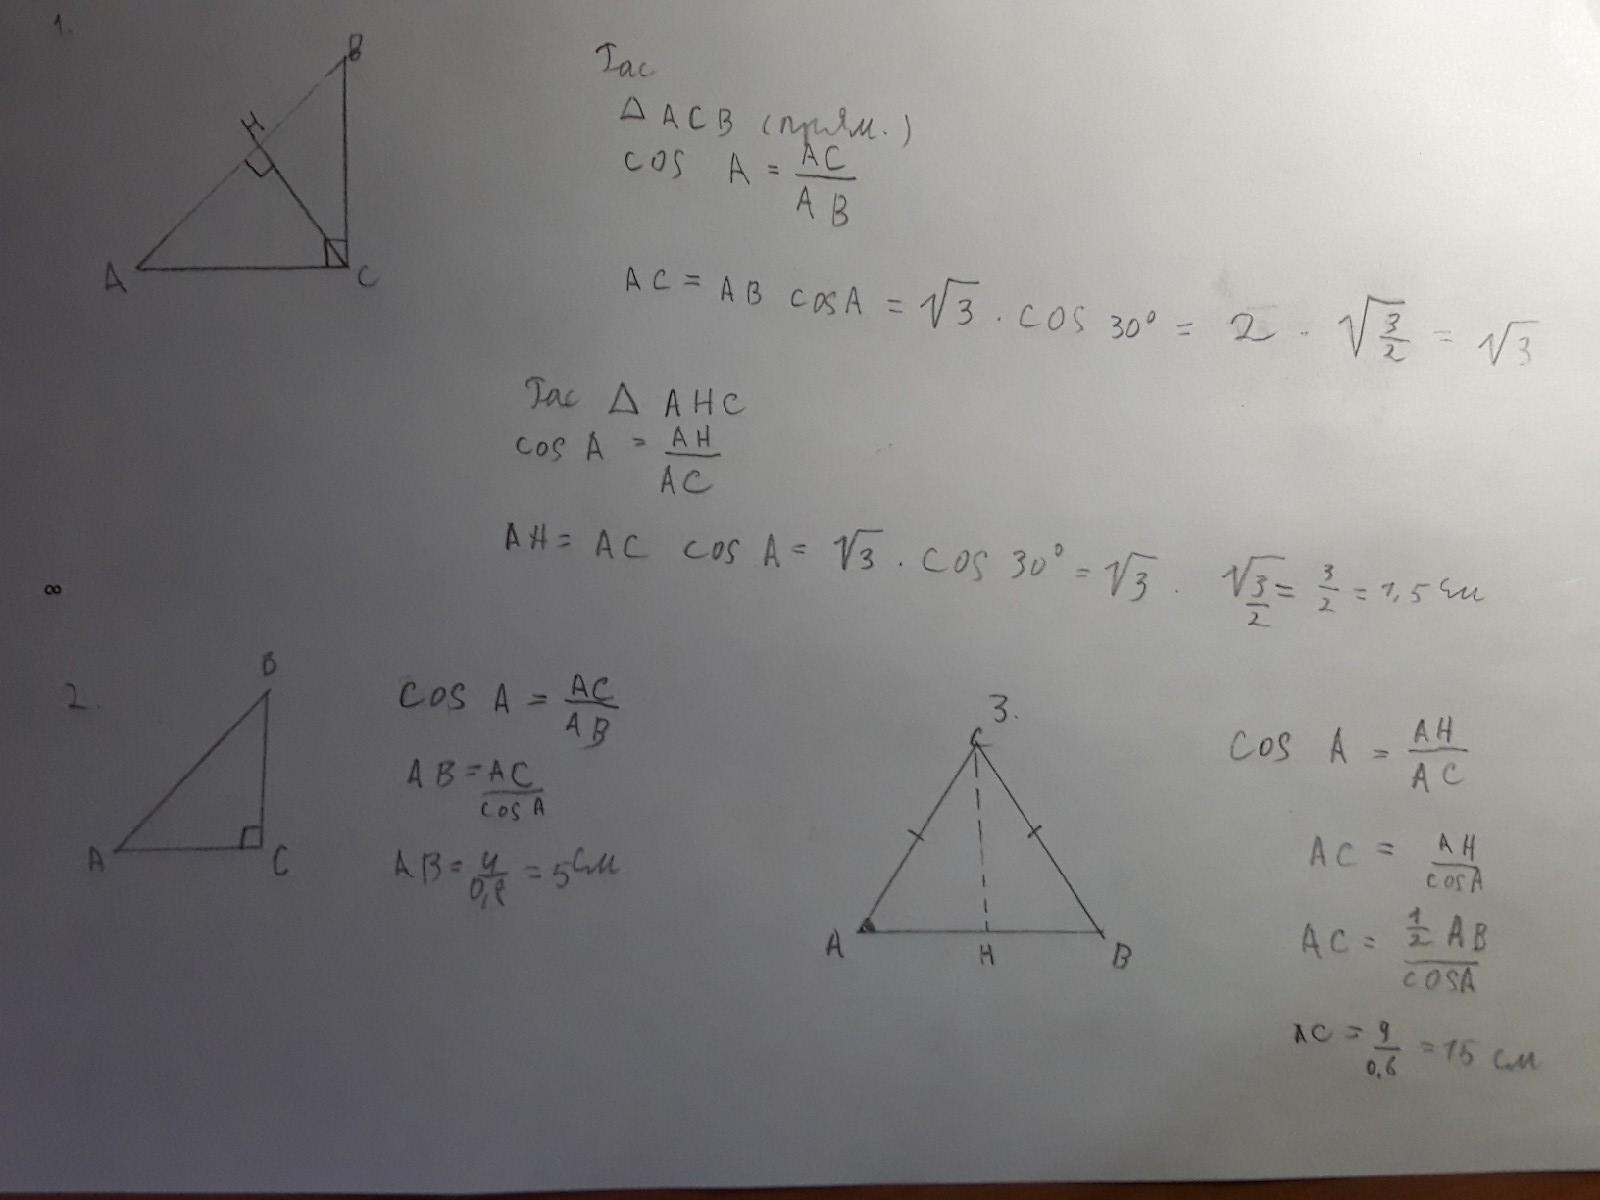 1.
B
H
A
C
Tac
Δ ACB (прям.)
cos A = AC/AB
AC = AB cosA = √3 · cos 30° = 2 · √3/2 = √3
Tac Δ AHC
cos A = AH/AC
AH = AC cos A = √3 · cos 30° = √3 · √3/2 = 3/2 = 1,5 см
∞
2.
B
A
C
cos A = AC/AB
AB = AC/cosA
AB = 4/0,8 = 5 см
3.
C
A
H
B
cos A = AH/AC
AC = AH/cosA
AC = 1/2 AB/cosA
AC = 9/0,6 = 15 см